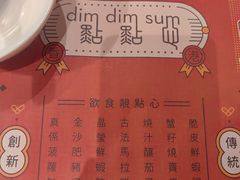 dim dim sum
點點心
飲食靚點心
傳統
脆皮鮮蝦
蟹籽燒賣
燒汁釀茄
古法馬拉
晶瑩鮮蝦
金沙肥豬
真係菠蘿
創新